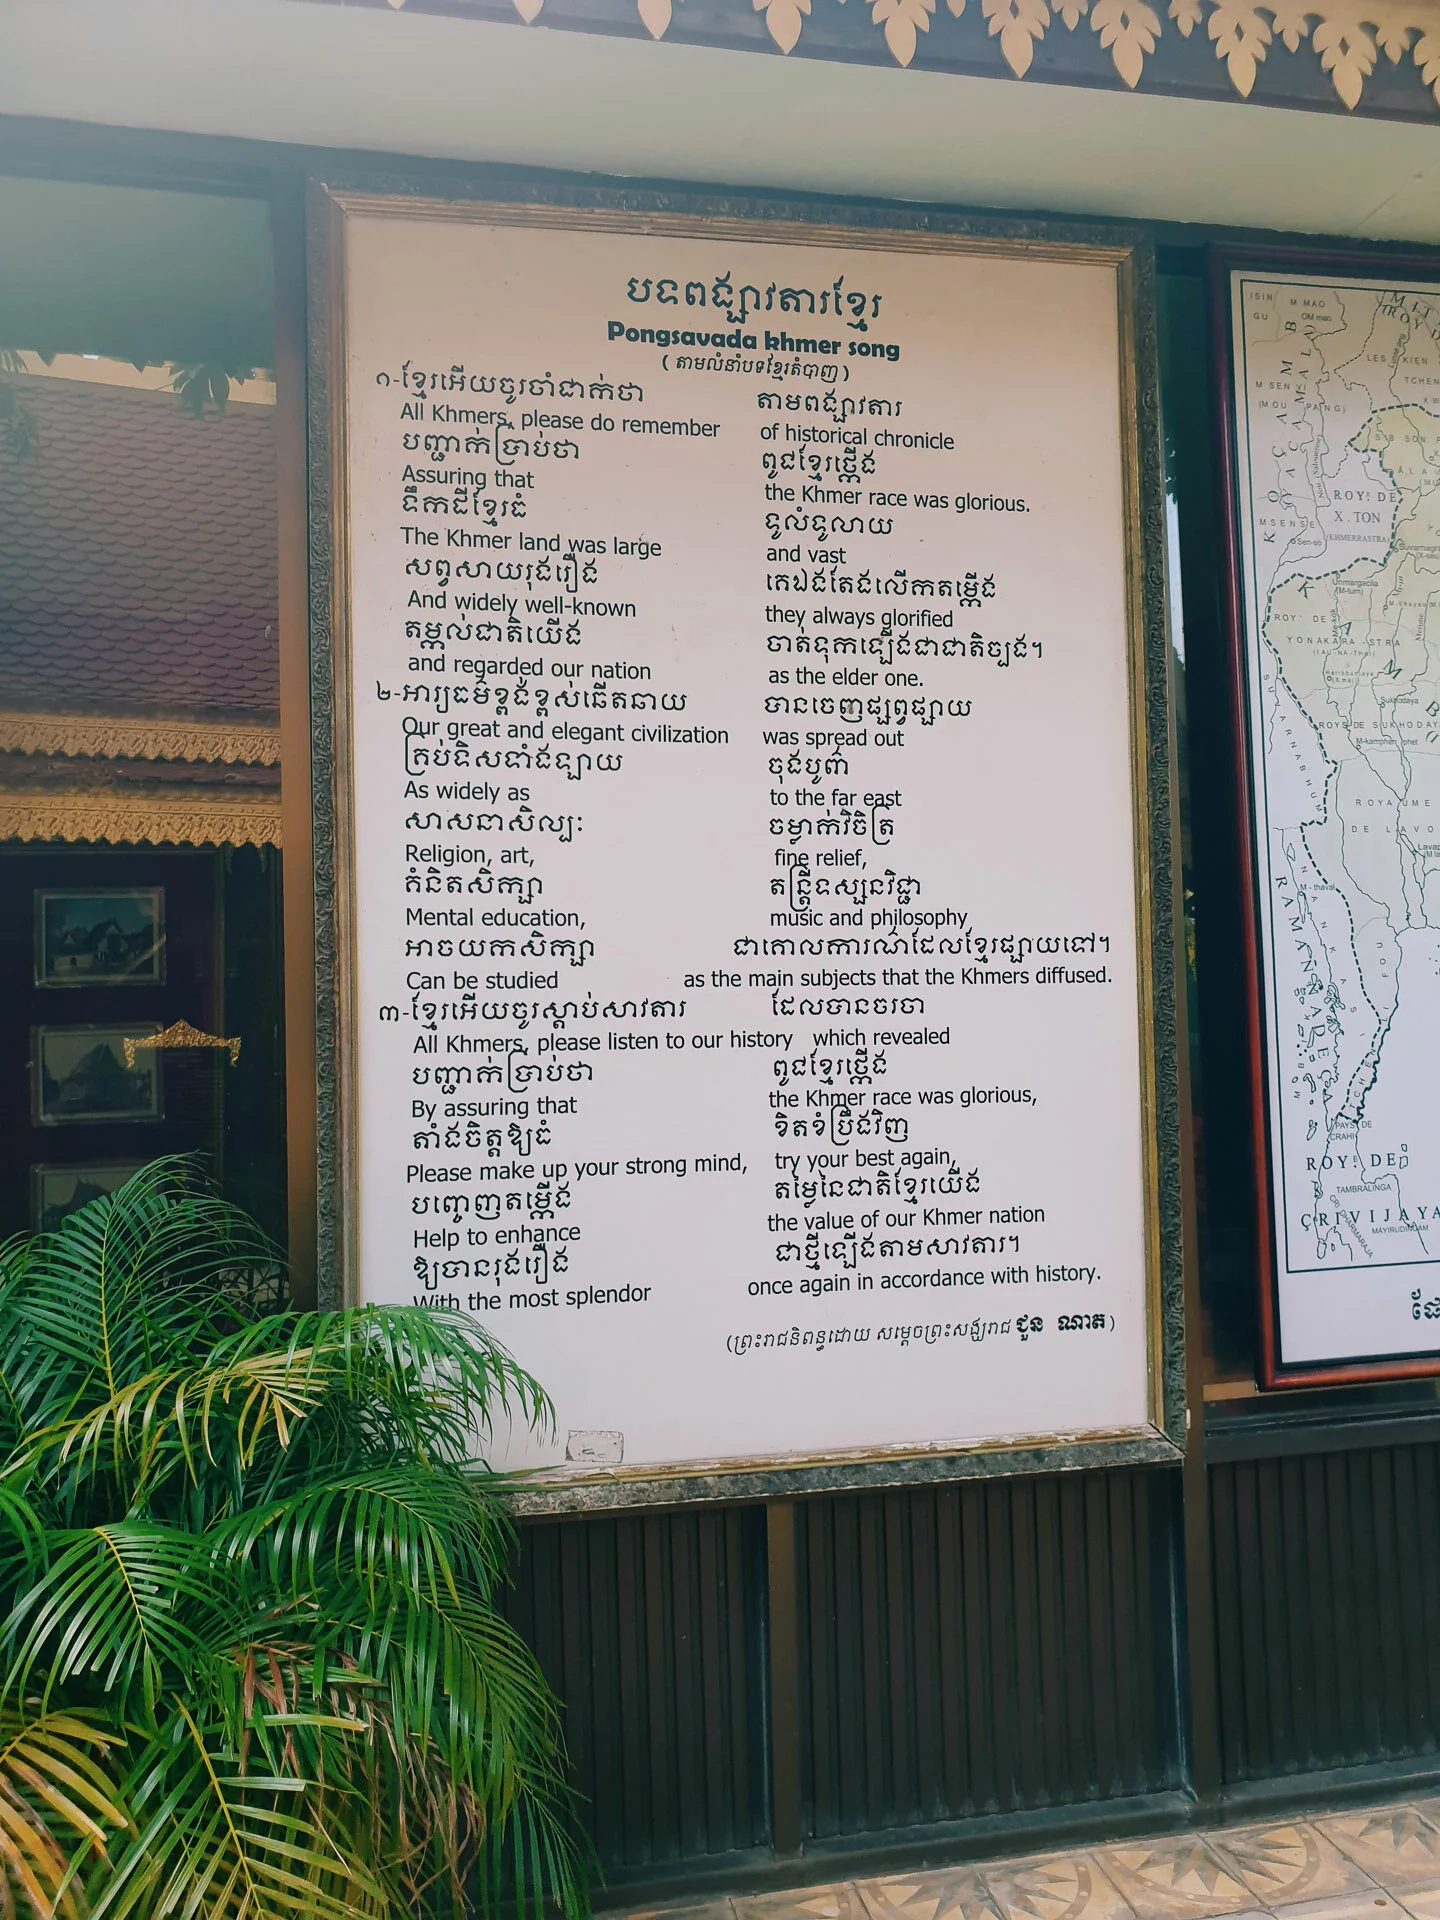 បទពង្សាវតារខ្មែរ
Pongsavada khmer song
( តាមលំនាំបទខ្មែរតំបាញ )
១-ខ្មែរអើយចូរចាំជាក់ថា តាមពង្សាវតារ
All Khmers, please do remember of historical chronicle
បញ្ជាក់ប្រាប់ថា ពូជខ្មែរថ្កើង
Assuring that the Khmer race was glorious.
ទឹកដីខ្មែរធំ ទូលំទូលាយ
The Khmer land was large and vast
សព្វសាយរុងរឿង គេឯងតែងលើកតម្កើង
And widely well-known they always glorified
តម្កល់ជាតិយើង ចាត់ទុកឡើងជាជាតិច្បង។
and regarded our nation as the elder one.
២-អារ្យធម៌ខ្ពង់ខ្ពស់ឆើតឆាយ បានចេញផ្សព្វផ្សាយ
Our great and elegant civilization was spread out
គ្រប់ទិសទាំងឡាយ ចុងបូព៌ា
As widely as to the far east
សាសនាសិល្បៈ ចម្លាក់វិចិត្រ
Religion, art, fine relief,
គំនិតសិក្សា តន្ត្រីទស្សនវិជ្ជា
Mental education, music and philosophy
អាចយកសិក្សា ជាគោលការណ៍ដែលខ្មែរផ្សាយទៅ។
Can be studied as the main subjects that the Khmers diffused.
៣-ខ្មែរអើយចូរស្ដាប់សាវតារ ដែលបានចរចា
All Khmers, please listen to our history which revealed
បញ្ជាក់ប្រាប់ថា ពូជខ្មែរថ្កើង
By assuring that the Khmer race was glorious,
តាំងចិត្តឱ្យធំ ខិតខំប្រឹងវិញ
Please make up your strong mind, try your best again,
បញ្ចេញតម្កើង តម្លៃនៃជាតិខ្មែរយើង
Help to enhance the value of our Khmer nation
ឱ្យបានរុងរឿង ជាថ្មីឡើងតាមសាវតារ។
With the most splendor once again in accordance with history.
(ព្រះរាជនិពន្ធដោយ សម្ដេចព្រះសង្ឃរាជ ជួន ណាត)
ISIN M MAO
GU OM mao
LES KIEN
TCHEN
M SEN VI
(MOU PAING)
ROY! DE
X . TON
(KHMERRASTRA)
MSENSE
Sen-so
Unmargacila
(M-tum)
ROY! DE
YONAKARA - STRA
Haribhunjaya
Sukhodaya
ROYS DE SUKHODAY
M-kamphen phet
SUVARNABHUMI
ROYAUME
DE LAVO
M - thaval
RAMANNADEÇA
PAYS DE
CRAHI
ROY! DE
TAMBRALINGA
ÇRIVIJAYA
MAYIRUDINGAM